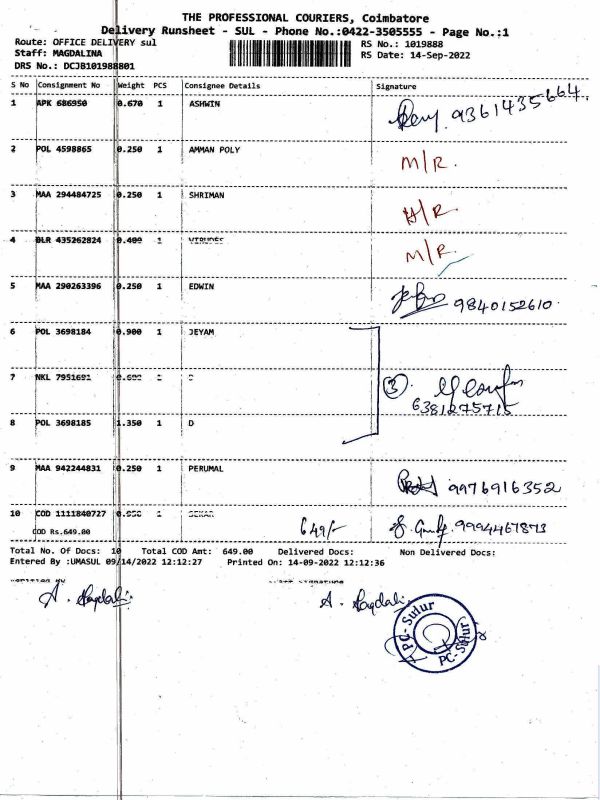 THE PROFESSIONAL COURIERS, Coimbatore
Delivery Runsheet - SUL - Phone No.:0422-3505555 - Page No.:1
Route: OFFICE DELIVERY sul
Staff: MAGDALINA
DRS No.: DCJB101988801
RS No.: 1019888
RS Date: 14-Sep-2022
S No Consignment No Weight PCS Consignee Details Signature
1 APK 686950 0.670 1 ASHWIN 9361435664
2 POL 4598865 0.250 1 AMMAN POLY M/R.
3 MAA 294484725 0.250 1 SHRIMAN H/R
4 BLR 435262824 0.400 1 M/R
5 MAA 290263396 0.250 1 EDWIN 9840152610
6 POL 3698184 0.900 1 JEYAM
7 NKL 7951691 ③
6381275715
8 POL 3698185 1.350 1 D
9 MAA 942244831 0.250 1 PERUMAL 9976916352
10 COD 1111840727 1 SEKAR 649/- 9994467873
COD Rs.649.00
Total No. Of Docs: 10 Total COD Amt: 649.00 Delivered Docs: Non Delivered Docs:
Entered By :UMASUL 09/14/2022 12:12:27 Printed On: 14-09-2022 12:12:36
A. A.
PC-Sulur
PC-Sulur